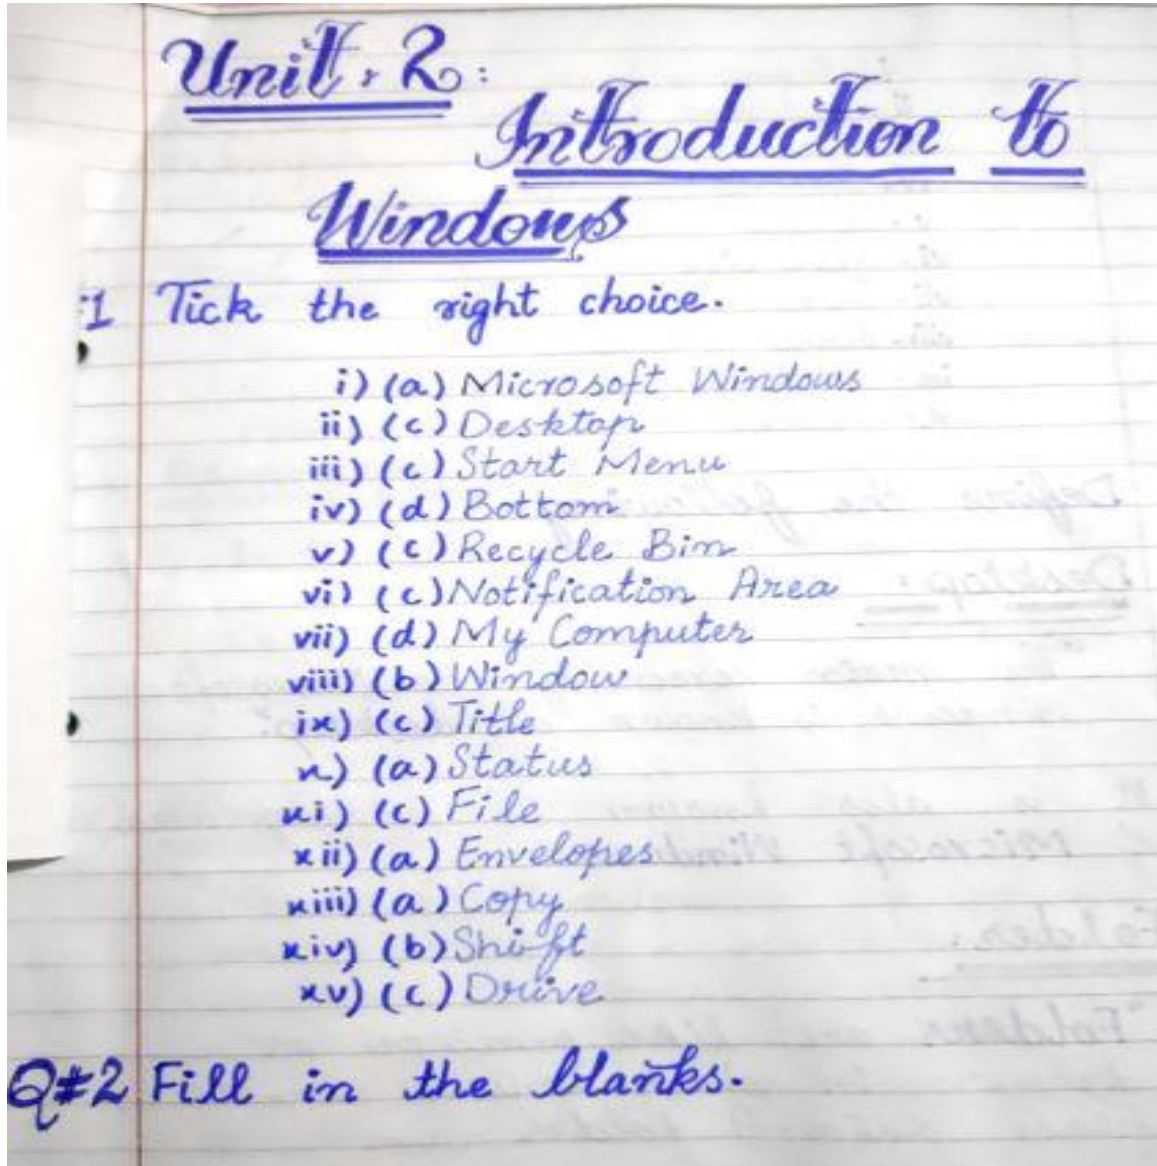 Unit. 2:
Introduction to
Windows
1 Tick the right choice.
i) (a) Microsoft Windows
ii) (c) Desktop
iii) (c) Start Menu
iv) (d) Bottom
v) (c) Recycle Bin
vi) (c) Notification Area
vii) (d) My Computer
viii) (b) Window
ix) (c) Title
x) (a) Status
xi) (c) File
xii) (a) Envelopes
xiii) (a) Copy
xiv) (b) Shift
xv) (c) Drive
Q#2 Fill in the blanks.